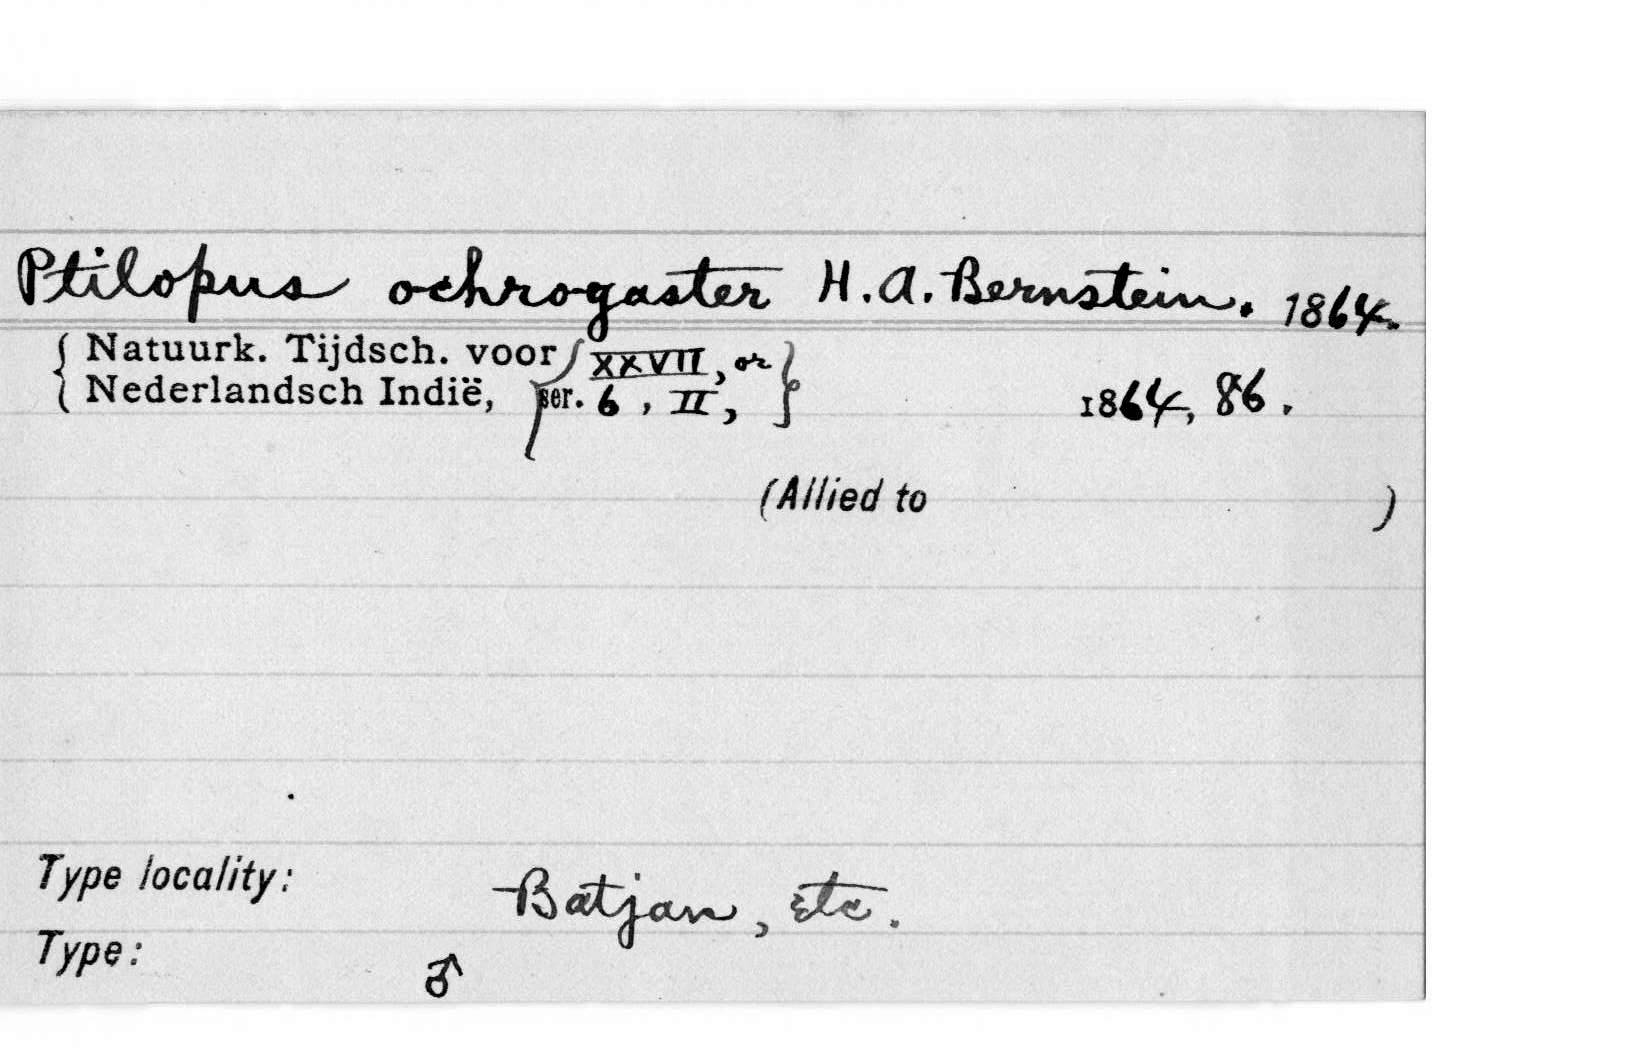 Ptilopus ochrogaster H. A. Bernstein. 1864.
{ Natuurk. Tijdsch. voor { XXVII, or }
{ Nederlandsch Indië, { ser. 6, II, } 1864, 86.
(Allied to )
Type locality: Batjan, etc.
Type: ♂